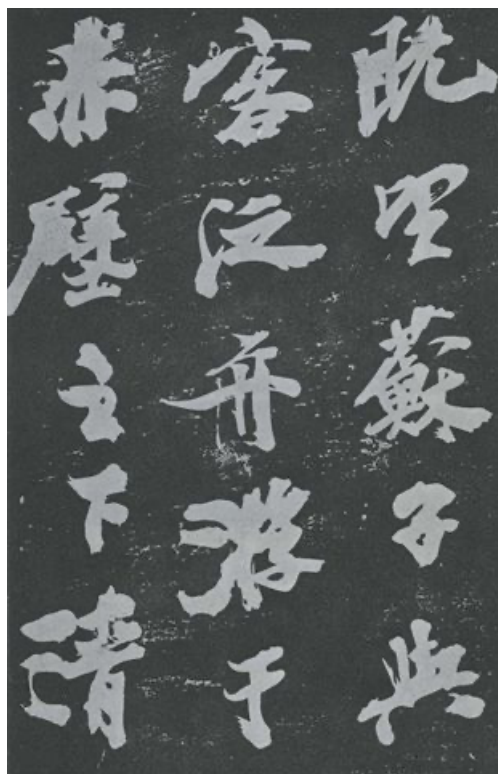 既望蘇子與
客泛舟游于
赤壁之下清